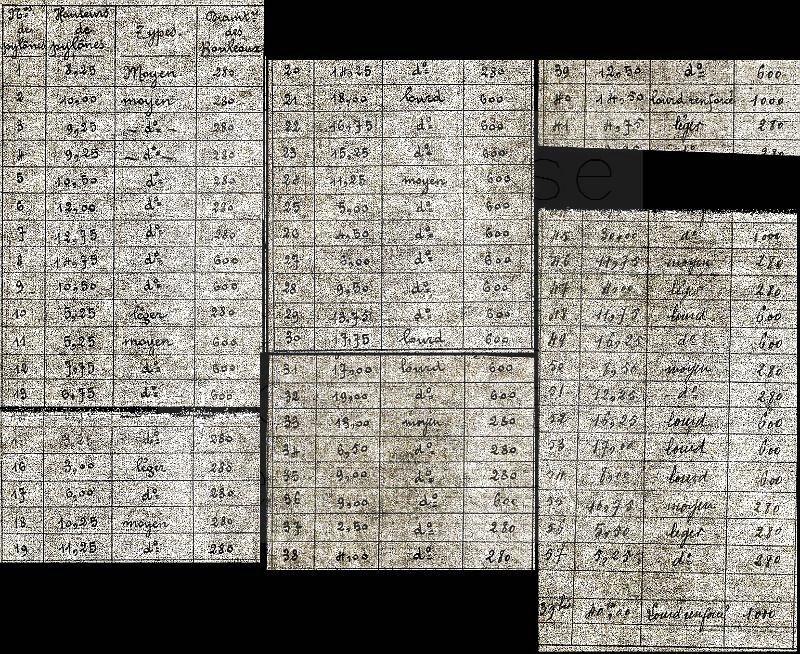 Nos de pylônes Hauteurs de pylônes Types. des Rouleaux
1 8,25 Moyen 280
2 10,00 moyen 280
3 9,25 - do - 280
4 9,25 - do - 280
5 10,50 do 280
6 12,00 do 280
7 12,75 do 280
8 14,75 do 600
9 10,50 do 600
10 5,25 léger 280
11 5,25 moyen 600
12 7,75 do 600
13 6,75 do 600
do 280
16 3,00 léger 280
17 6,00 do 280
18 10,25 moyen 280
19 11,25 do 280
20 14,25 do 280
21 18,00 lourd 600
22 16,75 do 600
23 15,25 do 600
24 11,25 moyen 600
25 5,00 do 600
26 4,50 do 600
27 3,00 do 600
28 9,50 do 600
29 13,75 do 600
30 17,75 lourd 600
31 17,00 lourd 600
32 19,00 do 600
33 18,00 moyen 280
34 6,50 do 280
35 9,00 do 280
36 9,00 do 600
37 2,50 do 280
38 4,00 do 280
39 12,50 do 600
40 14,50 lourd renforcé 1000
41 4,75 léger 280
se
45 30,00 do 1000
46 11,75 moyen 280
47 4,00 léger 280
48 11,75 lourd 600
49 16,25 do 600
50 8,50 moyen 280
51 12,25 do 280
52 16,25 lourd 600
53 17,00 lourd 600
54 8,00 lourd 600
55 10,75 moyen 280
56 5,50 léger 280
57 5,25 do 280
39 bis 40,00 Lourd renforcé 1000